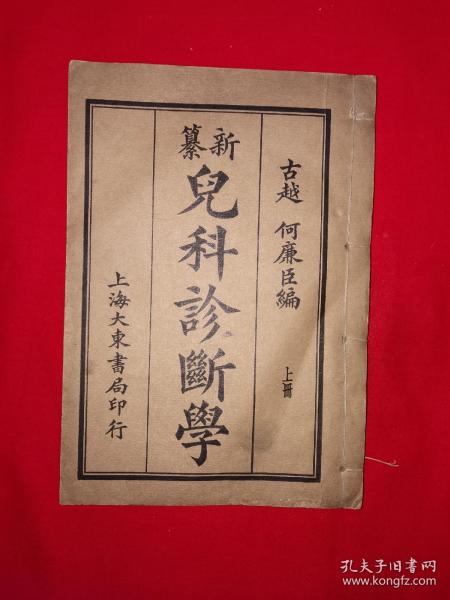 古越 何廉臣編
上冊
新纂
兒科診斷學
上海大東書局印行
孔夫子旧书网
www.kongfz.com